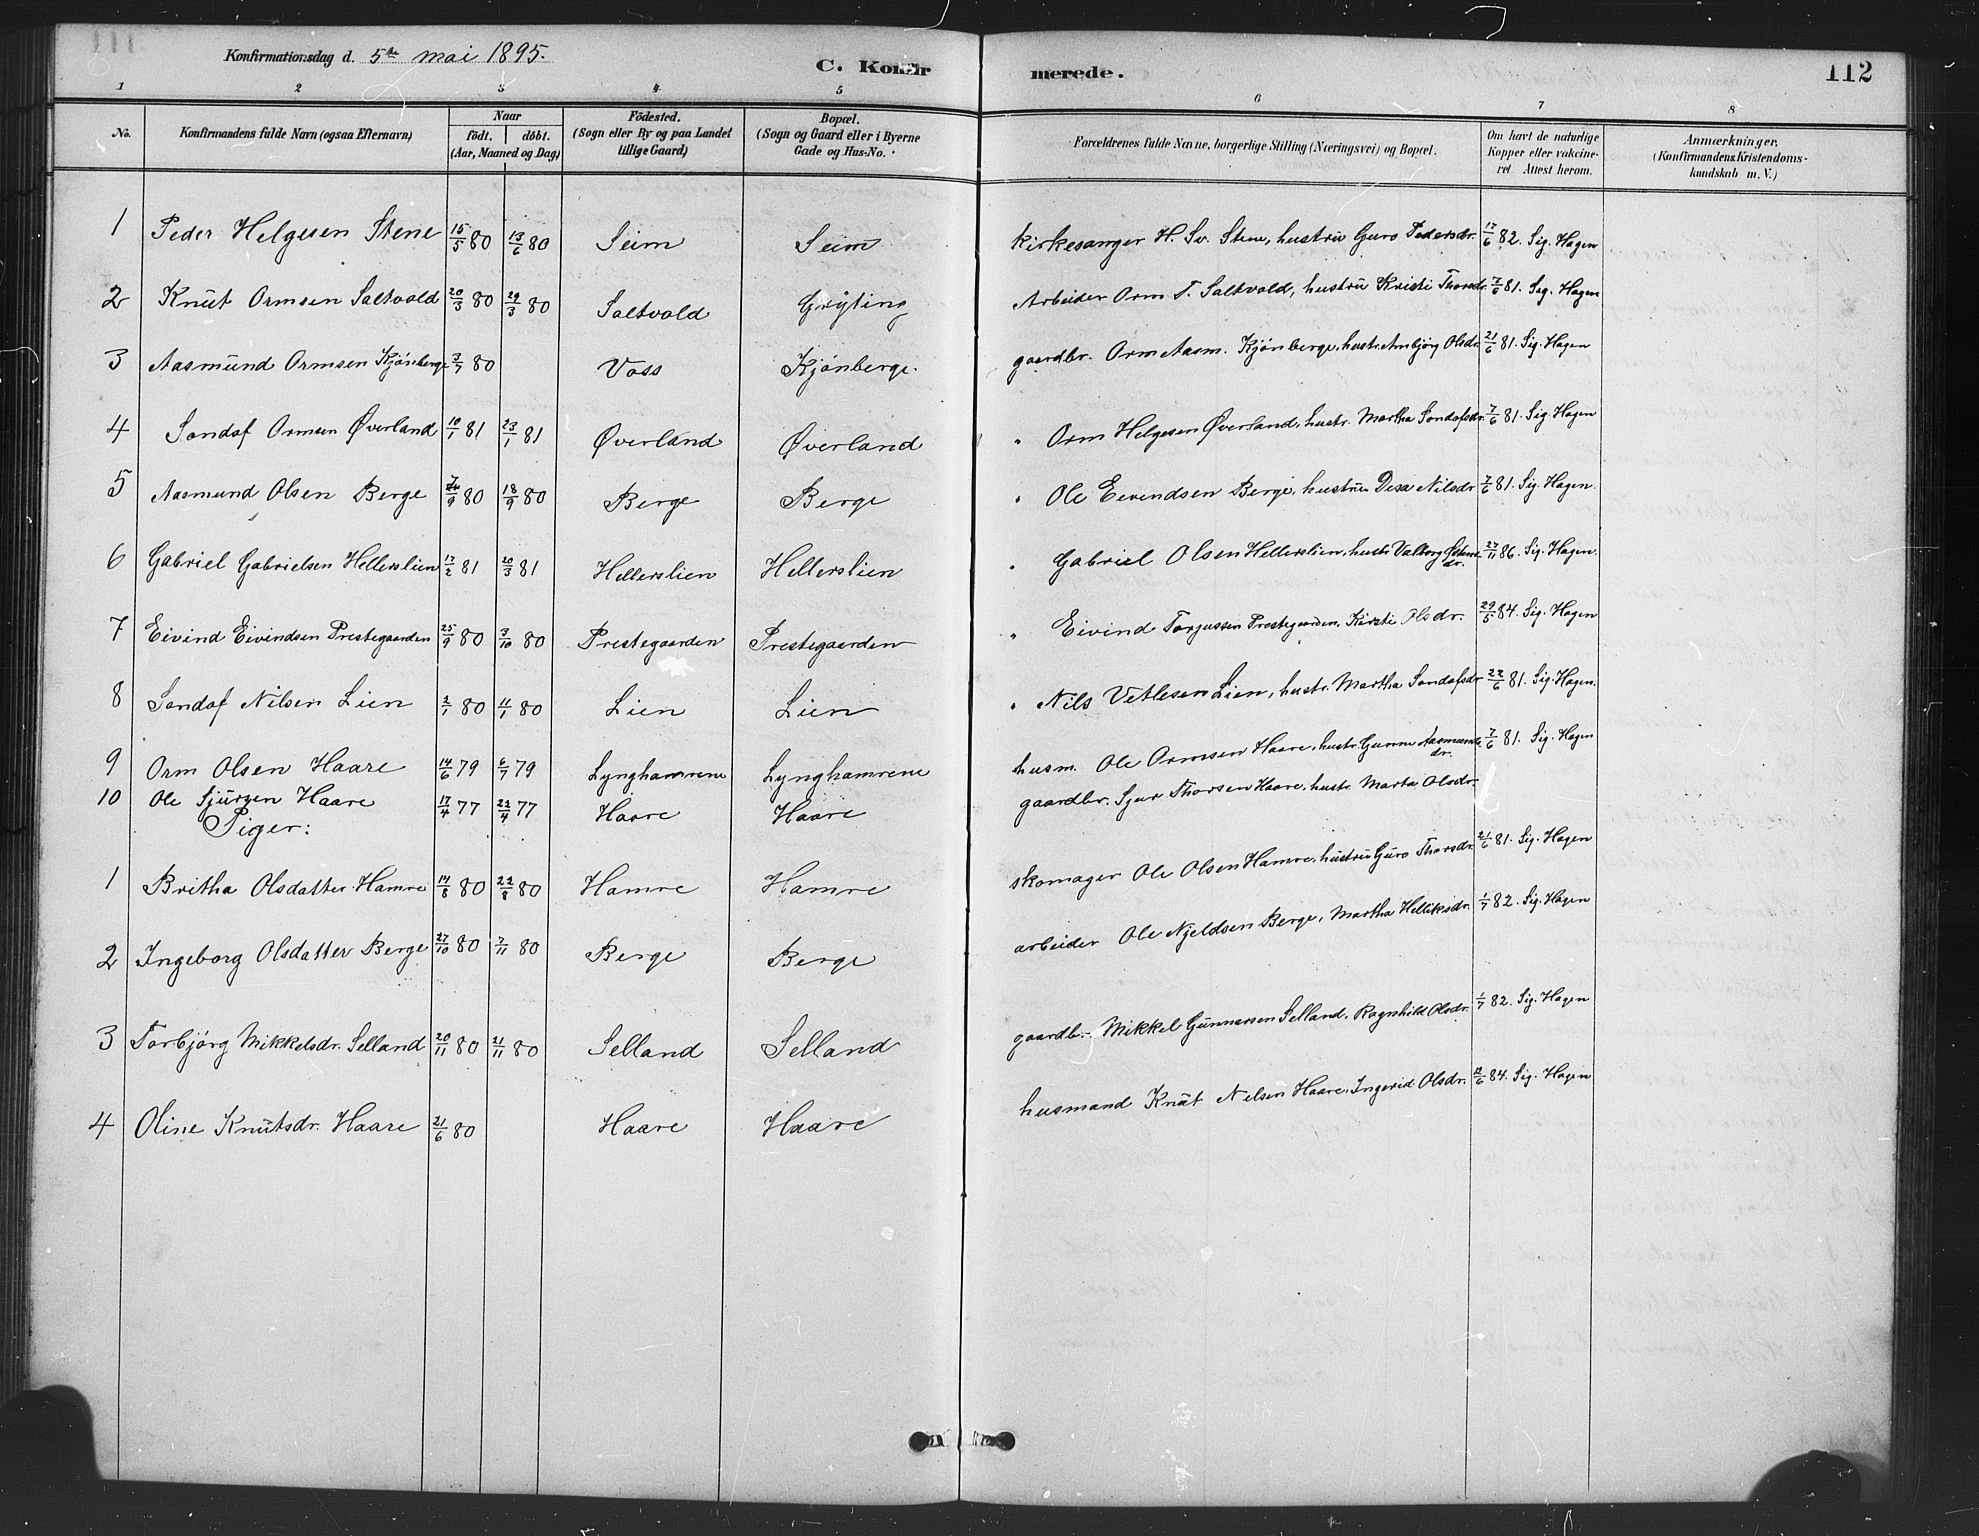 Konfirmationsdag d. 5te mai 1895.
C. Konfirmerede.
112
1 2 3 4 5 6 7 8
No. Konfirmandens fulde Navn (ogsaa Efternavn) Naar födt. döbt. (Aar, Maaned og Dag) Födested. (Sogn eller By og paa Landet tillige Gaard) Bopæl. (Sogn og Gaard eller i Byerne Gade og Hus-No. Forældrenes fulde Navne, borgerlige Stilling (Næringsvei) og Bopæl. Om havt de naturlige Kopper eller vakcineret. Attest herom. Anmærkninger. (Konfirmandens Kristendomskundskab m. V.)
1 Peder Helgesen Stene 15/5 80 13/6 80 Seim Seim kirkesanger H. Sv. Stene, hustru Guro Pedersdr. 17/6 82. Sig. Hagen
2 Knut Ormsen Saltvold 20/3 80 29/3 80 Saltvold Gryting Arbeider Orm T. Saltvold, hustru Kristi Thorsdr. 7/6 81. Sig. Hagen
3 Aasmund Ormsen Kjönberge 3/7 80 Voss Kjönberge. gaardbr. Orm Aasm. Kjönberge, hustr. Ambjörg Olsdr. 21/6 81. Sig. Hagen
4 Sondof Ormsen Øverland 10/1 81 23/1 81 Øverland Øverland " Orm Helgesen Øverland, hustr. Martha Sondofsdr. 7/6 81. Sig. Hagen
5 Aasmund Olsen Berge 7/9 80 18/9 80 Berge Berge " Ole Eivendsen Berge, hustru Desa Nilsdr 7/6 81. Sig. Hagen.
6 Gabriel Gabrielsen Hellerslien 17/2 81 20/3 81 Hellerslien Hellerslien " Gabriel Olsen Hellerslien, hustr Valborg dr. 27/11 86. Sig. Hagen.
7 Eivind Eivindsen Prestegaarden 25/9 80 3/10 80 Prestegaarden Prestegaarden " Eivind Torjussen Prestegaarden, Kirsti Olsdr. 29/5 84. Sig. Hagen
8 Sondof Nilsen Lien 2/1 80 11/1 80 Lien Lien " Nils Vetlesen Lien, hustr. Martha Sondofsdr 22/6 81. Sig. Hagen.
9 Orm Olsen Haare 14/6 79 6/7 79 Lynghamrene Lynghamrene husm. Ole Ormsen Haare, hustr. Gunne Aasmundsdr. 7/6 81. Sig. Hagen
10 Ole Sjursen Haare 17/4 77 22/4 77 Haare Haare gaardbr. Sjur Thorsen Haare, hustr. Marta Olsdr.
Piger:
1 Britha Olsdatter Hamre 14/8 80 22/8 80 Hamre Hamre skomager Ole Olsen Hamre, hustru Guro Thorsdr. 21/6 81. Sig. Hagen
2 Ingeborg Olsdatter Berge 27/10 80 7/11 80 Berge Berge arbeider Ole Njeldsen Berge, Martha Helliksdr. 1/7 82. Sig. Hagen
3 Torbjörg Mikkelsdr. Selland 20/11 80 21/11 80 Selland Selland gaardb.- Mikkel Gunnarsen Selland, Ragnhild Olsdr. 1/7 82. Sig. Hagen
4 Oline Knutsdr. Haare 21/6 80 Haare Haare husmand Knut Nelsen Haare, Ingerid Olsdr. 12/6 84. Sig. Hagen